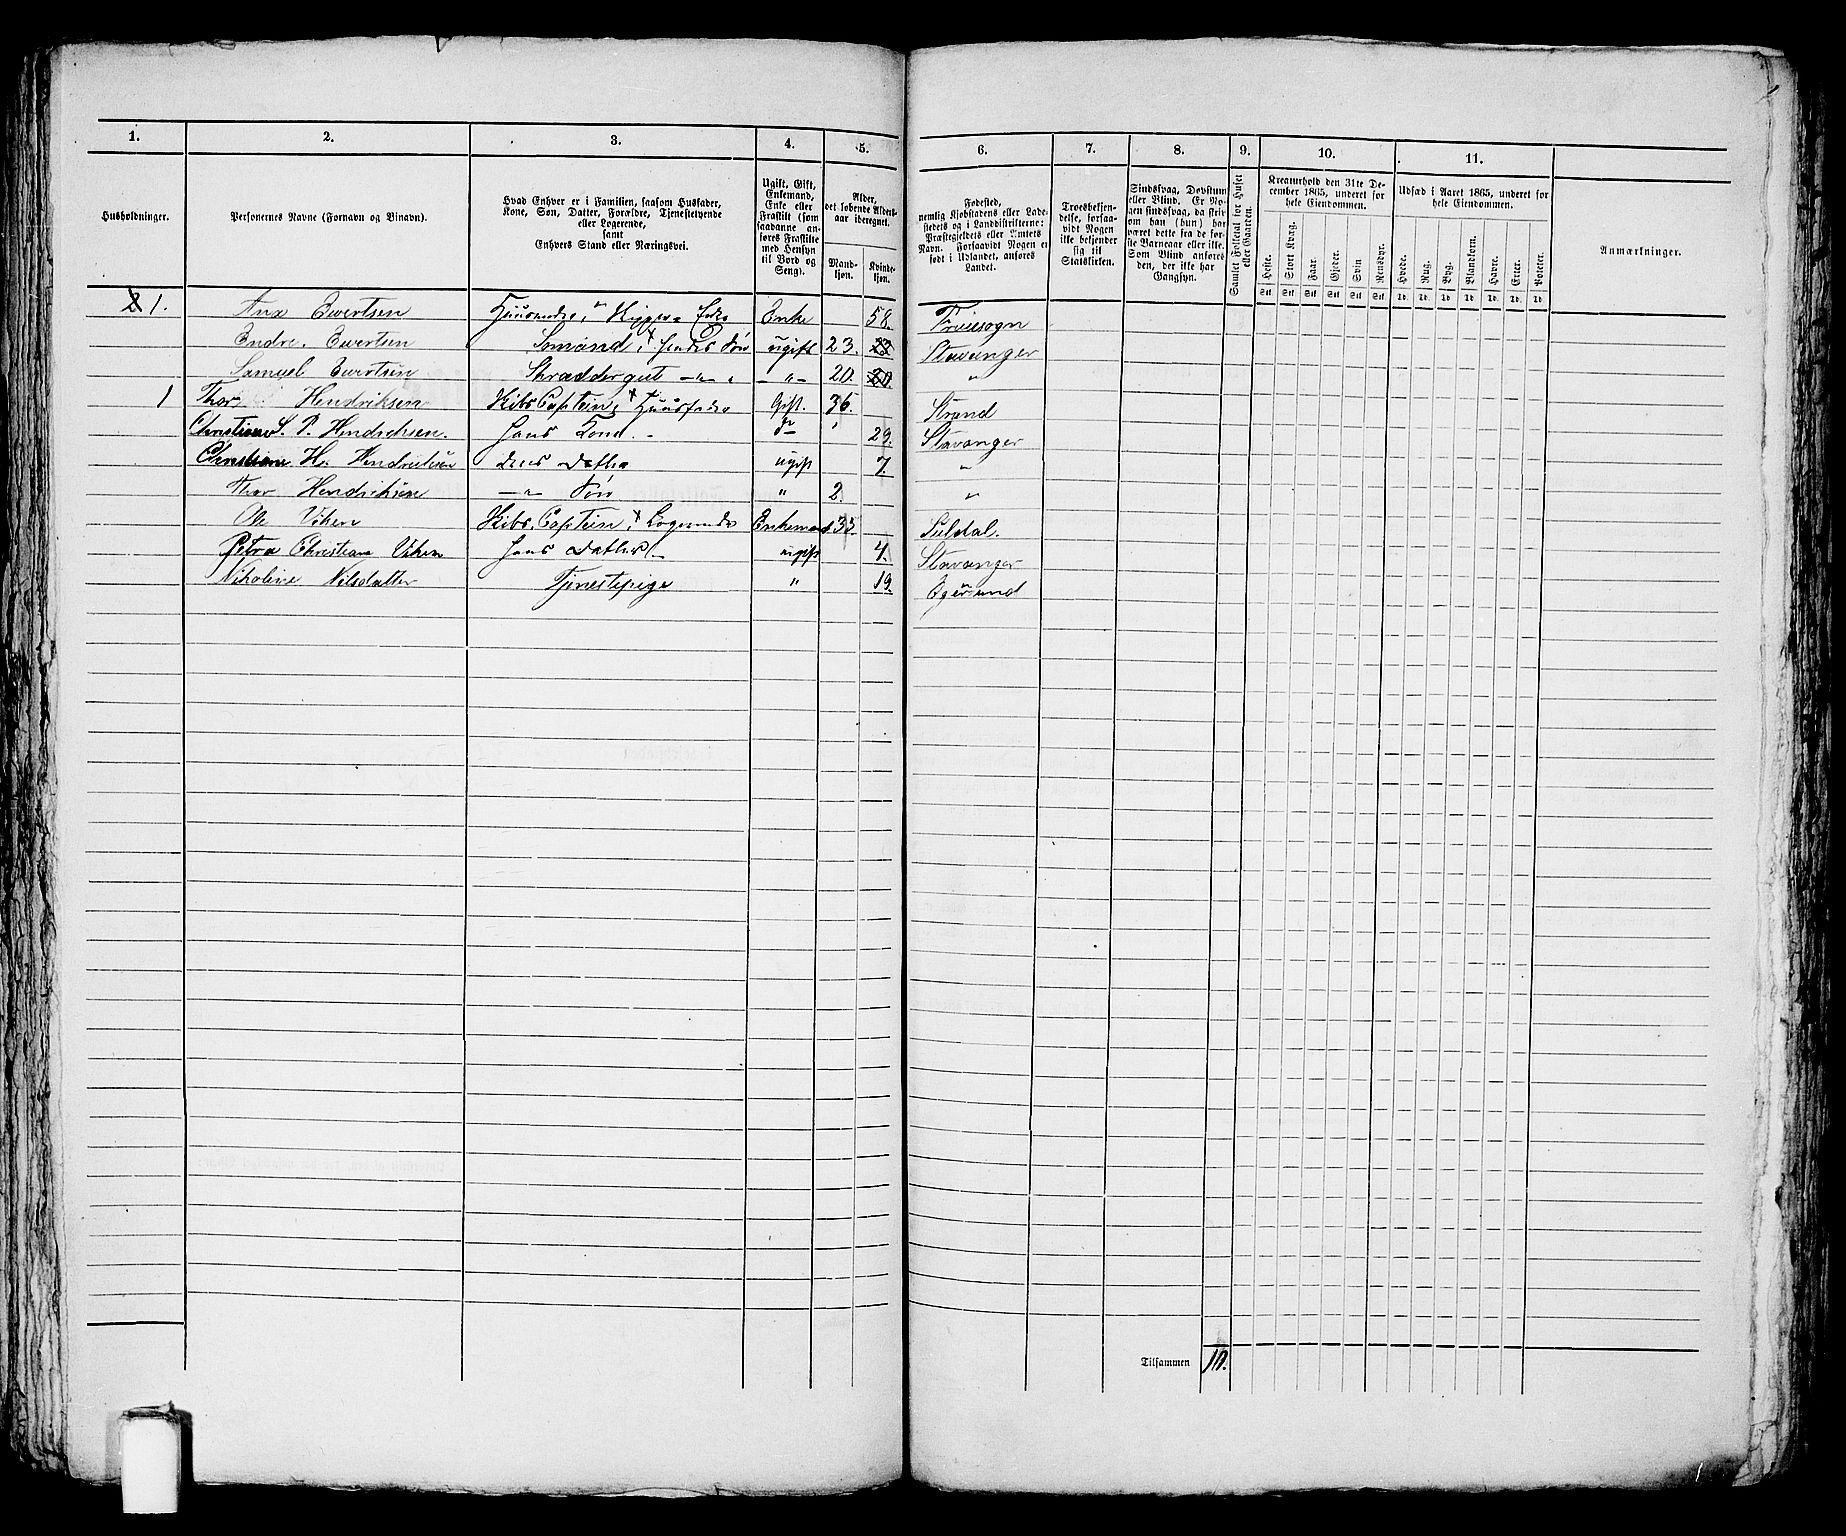 1. 2. 3. 4. 5. 6. 7. 8. 9. 10. 11.
Husholdninger.
Personernes Navne (Fornavn og Tilnavn).
Hvad Enhver er i Familien, saasom Husfader,
Kone, Søn, Datter, Forældre, Tjenestetyende
eller Logerende,
samt
Enhvers Stand eller Næringsvei.
Ugift, Gift,
Enkemand,
Enke eller
Fraskilt (som
saadanne an-
føres Fraskilte
med Hensyn
til Bord og
Seng).
Alder,
det løbende Alders-
aar iberegnet.
Mand-
kjøn.
Kvinde-
kjøn.
Fødested,
nemlig Kjøbstadens eller Lade-
stedets og i Landdistrikterne:
Præstegjeldets eller Amtets
Navn. Forsaavidt Nogen er
født i Udlandet, anføres
Landet.
Troesbekjen-
delse, forsaa-
vidt Nogen
ikke bekjender
sig til
Statskirken.
Sindssvag, Døvstum
eller Blind. Er No-
gen sindssvag, da skriv
om han (hun) har
været dette fra de før-
ste Barneaar eller ikke.
Som Blind anføres
den, der ikke har
Gangsyn.
Samlet Folketal for Huset
eller Gaarden.
Kreaturhold den 31te De-
cember 1865, underet for
hele Eiendommen.
Heste. Stort Kvæg. Faar. Gjeder. Svin Rensdyr.
Stk. Stk. Stk. Stk. Stk. Stk.
Udsæd i Aaret 1865, underet for
hele Eiendommen.
Hvede. Rug. Byg. Blandkorn. Havre. Erter. Poteter.
Td. Td. Td. Td. Td. Td. Td.
Anmærkninger.
1. Ewertsen Enke 58.
Endre Ewertsen Sømand, Hendes Søn ugift 23. 23 Stavanger
Samuel Ewertsen Skræddergut — " — — " — 20. 20. "
1 Thor Hendriksen Skibs Captein, Huusfader Gift. 36. Strand
Christiane S. P. Hendrichsen. Hans Kone. 29. Stavanger
Christiane H. Hendrichsen deres Datter ugift 7. "
Thor Hendrichsen — " — Søn " 2. "
Ole Viken Skibs Captein, Logerende Enkemand 33. Suldal.
Petra Christiane Viken Hans Datter. ugift 4. Stavanger
Nicoline Nilsdatter Tjenestepige " 19. Egersund
Tilsammen 10.